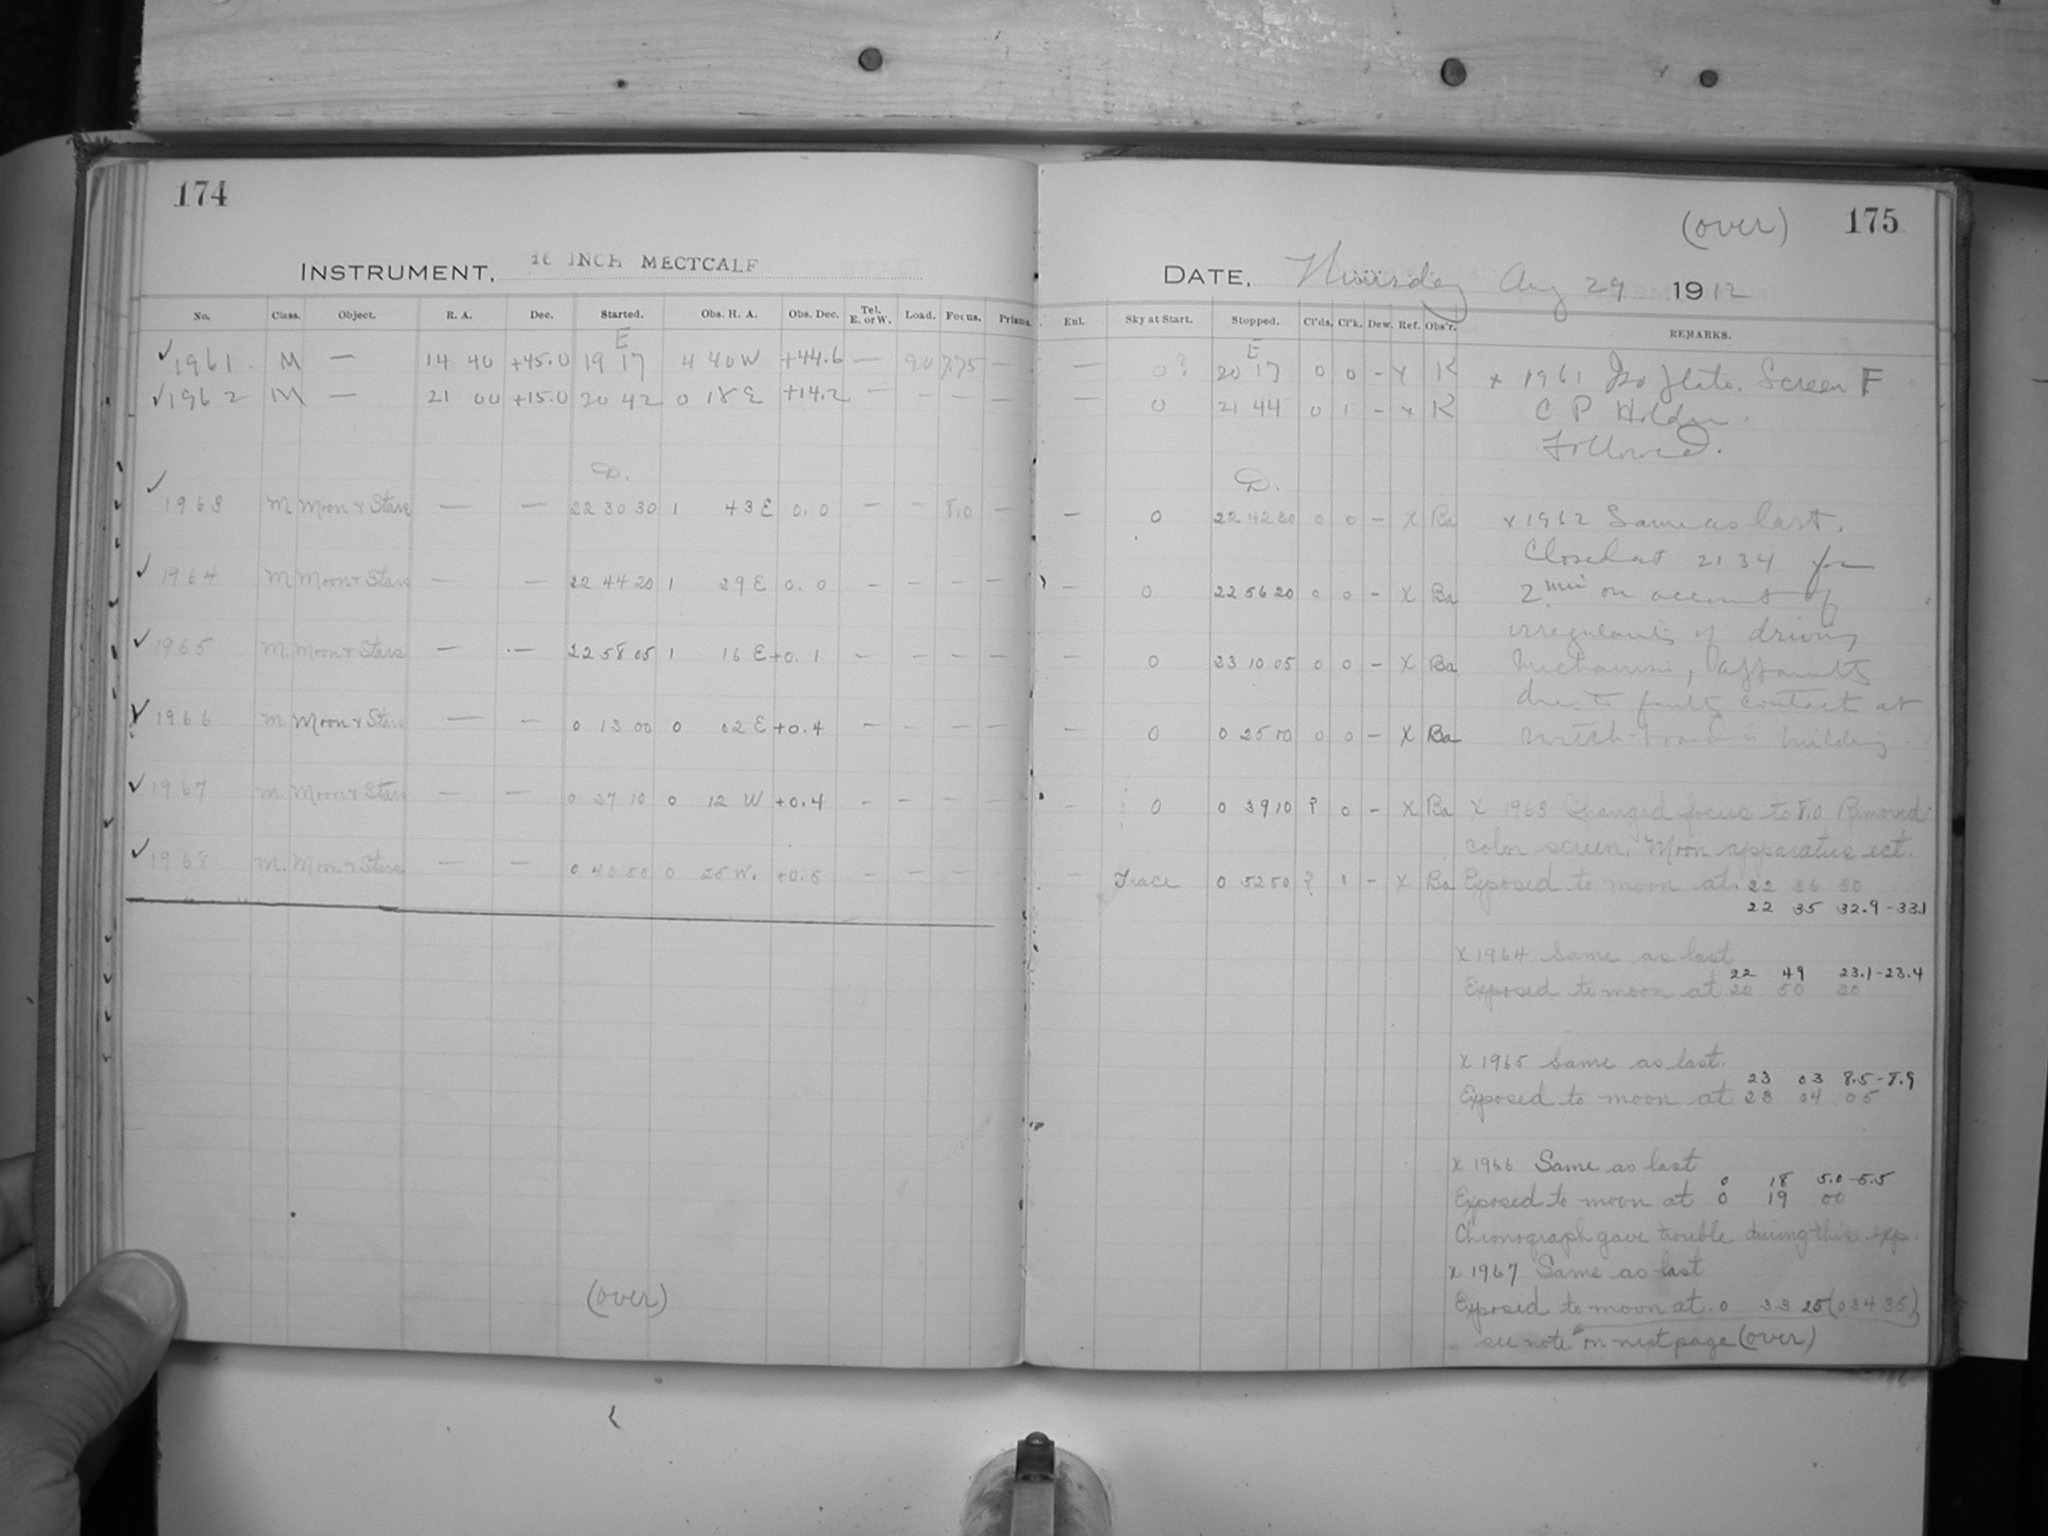 174
INSTRUMENT. 16 INCH MECTCALF
No. Class. Object. R. A. Dec. Started. Obs. H. A. Obs. Dec. Tel. E. or W. Load. Focus. Prisms.
E
✓ 1961 M — 14 40 +45.0 19 17 4 40 W +44.6 — 90 7.75 —
✓ 1962 M — 21 00 +15.0 20 42 0 18 E +14.2 — — — —
D.
✓ 1963 M Moon & Stars — — 22 30 30 1 43 E 0.0 — — 8.0 —
✓ 1964 M Moon & Stars — — 22 44 20 1 29 E 0.0 — — — —
✓ 1965 M. Moon & Stars — — 22 58 05 1 16 E +0.1 — — — —
✓ 1966 M Moon & Stars — — 0 13 00 0 02 E +0.4 — — — —
✓ 1967 M. Moon & Stars — — 0 27 10 0 12 W +0.4 — — — —
✓ 1968 M. Moon & Stars — — 0 40 50 0 25 W. +0.5 — — — —
(over)
(over) 175
DATE. Thursday Aug 29 1912
Enl. Sky at Start. Stopped. Cl'ds. Cl'k. Dew. Ref. Obs'r. REMARKS.
E
— 0? 20 17 0 0 - x K
— 0 21 44 0 1 - x K
D.
— 0 22 42 30 0 0 - x Ba
— 0 22 56 20 0 0 - x Ba
— 0 23 10 05 0 0 - x Ba
— 0 0 25 10 0 0 - x Ba
— 0 0 39 10 ? 0 - x Ba
— Trace 0 52 50 ? 1 - x Ba
x 1961 Iso plate. Screen F
C P Holder.
Followed.
x 1962 Same as last.
Closed at 21 34 for
2 min on account of
irregularity of driving
mechanism, apparently
due to faulty contact at
switch-board in building.
x 1963 Changed focus to 8.0 Removed
color screen. Moon apparatus ect.
Exposed to moon at. 22 36 30
22 35 32.9-33.1
x 1964 Same as last
22 49 23.1-23.4
Exposed to moon at 22 50 20
x 1965 Same as last.
23 03 8.5-8.9
Exposed to moon at 23 04 05
x 1966 Same as last
0 18 5.0-5.5
Exposed to moon at 0 19 00
Chronograph gave trouble during this exp.
x 1967 Same as last
Exposed to moon at. 0 33 25 (0 34 35)
see note on next page (over)